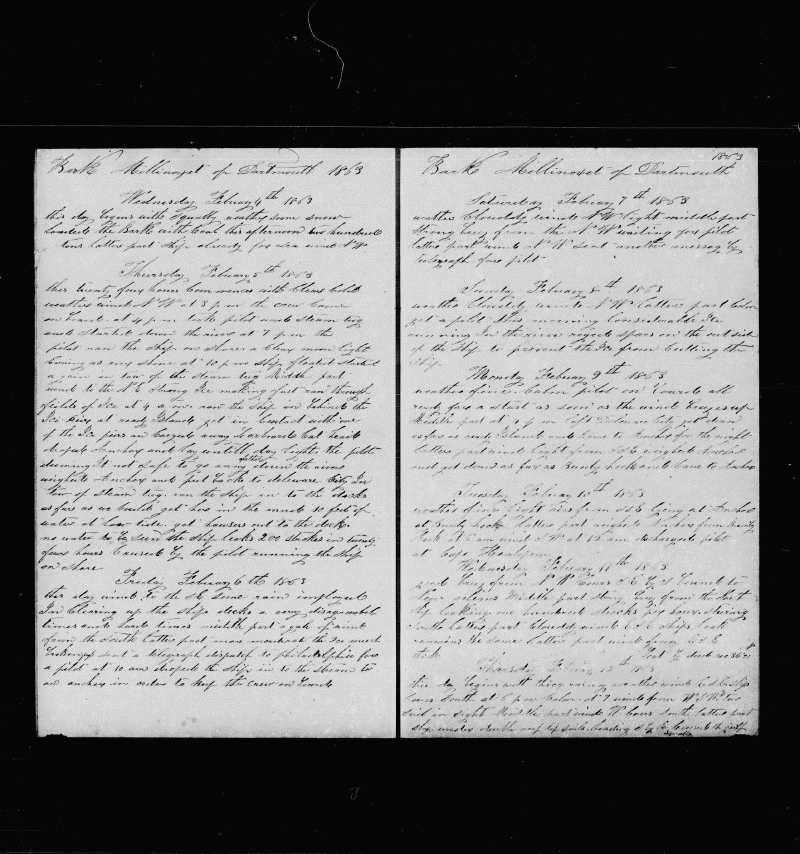 Bark Millinoxet of Dartmouth 1863
Wednesday Febuary 4th 1863
this day begins with Squally weather, some snow
loaded the Bark with Coal this afternoon two hundred
tons latter part ship already for sea wind N W
Thursday Febuary 5th 1863
this twenty four hours Commences with Clear Cold
weather wind N W at 3 p m the crew Came
on board at 4 p m took pilot and steam tug
and started down the river at 7 p m the
pilot ran the ship on shore a Clear moon light
at 10 p m ship floated started
again in tow of the steam tug Middle part
wind to the N E strong Ice making fast ran through
fields of Ice at 4 a m ran the ship in behind the
Ice piers at reedy Island got in Contact with one
of the Ice piers and Carried away Larboard Cat head
dropt Anchor and lay untill day light the pilot
deeming it not safe to go any further down the river
weighed Anchor and put back to deleware City In
tow of steam tug ran the ship in to the docks
as far as we Could get her in the mud 10 feet of
water at low tide got hawsers out to the dock
no water to be seen the ship leaks 200 strokes in twenty
four hours Caused by the pilot running the ship
on shore
Friday Febuary 6th 1863
this day wind to the SE some rain imployed
In Clearing up the ship decks a very disagreeable
time and hard times middle part a gale of wind
from the South latter part more moderate the Ice much
broken up sent a telegraph dispatch to philadelphia for
a pilot at 10 am droped the ship in to the stream to
an anchor in order to keep the crew on board
1863
Bark Millinoxet of Dartmouth
Saturday Febuary 7th 1863
weather Cloudy wind N W light middle part
strong breeze from the N W waiting for pilot
latter part wind N W sent another message by
telegraph for pilot
Sunday Febuary 8th 1863
weather Cloudy wind N W latter part Calm
got a pilot this morning Considerable Ice
running In the river riged spars on the out side
of the ship to prevent the Ice from Cutting the
ship
Monday Febuary 9th 1863
weather fine Calm pilot on board all
ready for a start as soon as the wind breezes up
Middle part at 4 p m left Delaware City got down
as far as reedy Island and Came to Anchor for the night
latter part wind light from S E weighed Anchor
and got down as far as Bomby hook and Came to Anchor
Tuesday Febuary 10th 1863
weather fine light airs from S E lying at Anchor
at Bomby hook latter part weighed Anchor from Bomby
hook at 6 am wind S W at 12 am discharged pilot
at Cape Henlopen
Wednesday Febuary 11th 1863
good breeze from N W Course S E by S bound to
Middle part strong breeze from the West
ship leaking one hundred strocks pr hour steering
latter part Cloudy wind E S E ships leak
remains the same latter part wind from E S E
Lat by dead rec 36
Thursday Febuary 12th 1863
this day begins with thick rainy weather wind E S E ship
Course South at 6 p m Calm at 7 wind from W S W
sail in sight Middle part wind W Course South latter part
ship under double reef top sails heading S E
squalls